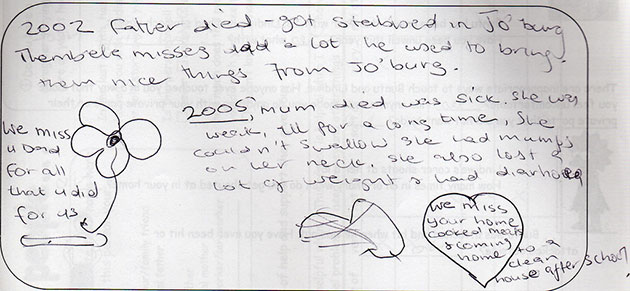 2002 Father died - got stabbed in Jo'burg
Thembele misses dad a lot he used to bring
them nice things from Jo'burg.
2005, Mum died was sick. She was
weak, ill for a long time, She
couldn't swallow she had mumps
on her neck. She also lost a
lot of weight & had diarhoea
We miss
u Dad
for all
that u did
for us
we miss
your home
cooked meals
& coming
home to a
clean
house after school